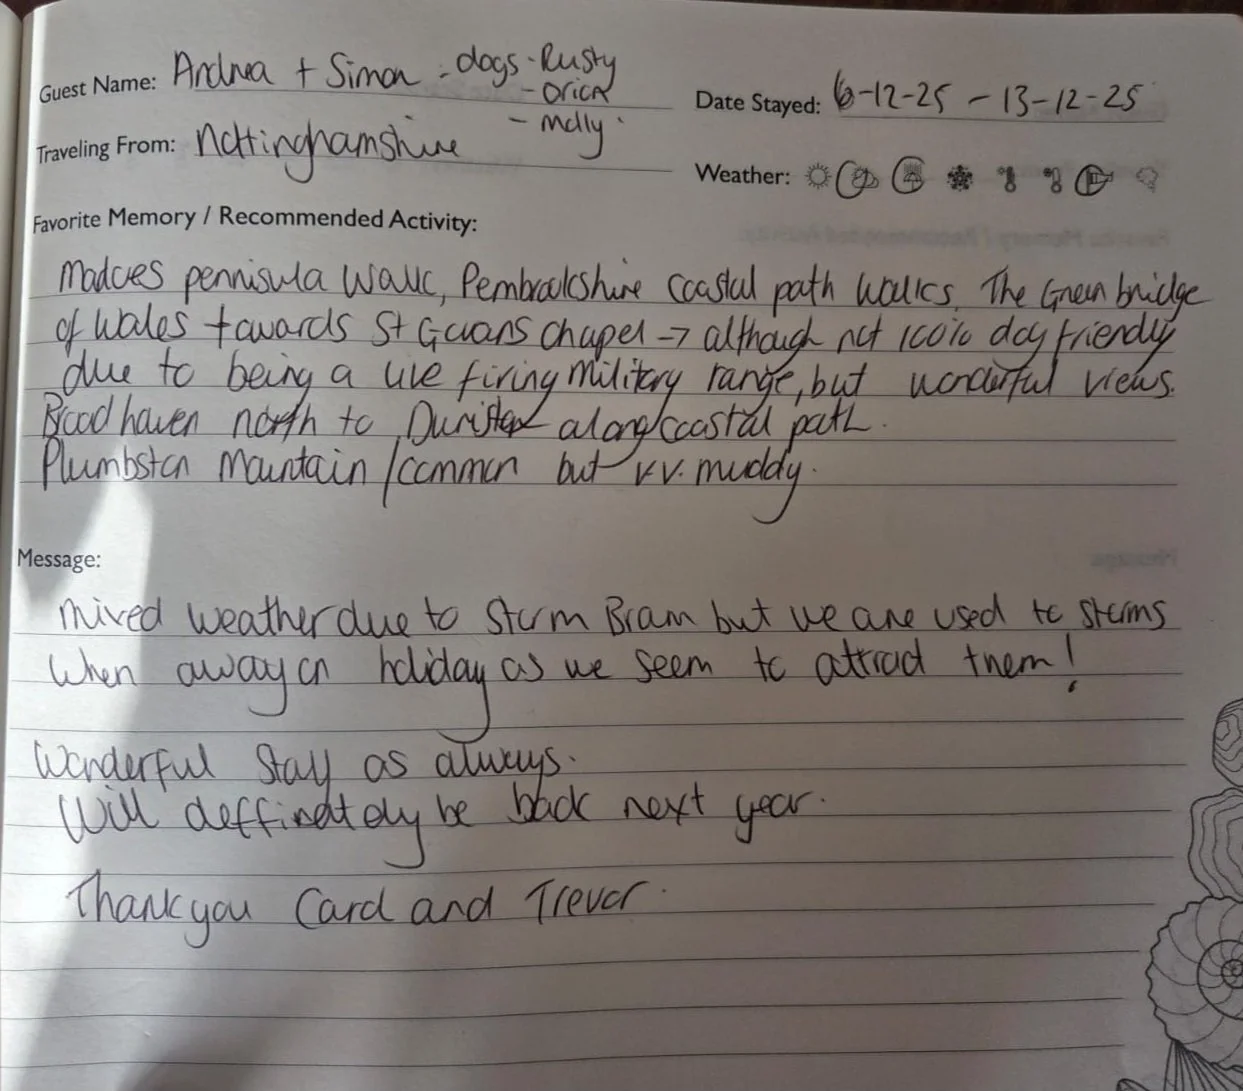 Guest Name: Andrea + Simon - dogs - Rusty
- Orica
- Molly
Date Stayed: 6-12-25 - 13-12-25
Traveling From: Nottinghamshire
Weather:
Favorite Memory / Recommended Activity:
Madoes pennisula Walk, Pembrokshire Coastal path Walks, The Green bridge
of Wales towards St Govans Chapel → although not 100% dog friendly
due to being a live firing military range, but wonderful views.
Broad haven north to along coastal path.
Plumbston Mountain / common but v.v. muddy.
Message:
Mixed weather due to Storm Bram but we are used to storms
When away on holiday as we seem to attract them!
Wonderful Stay as always.
Will deffinately be back next year.
Thankyou Carol and Trevor.